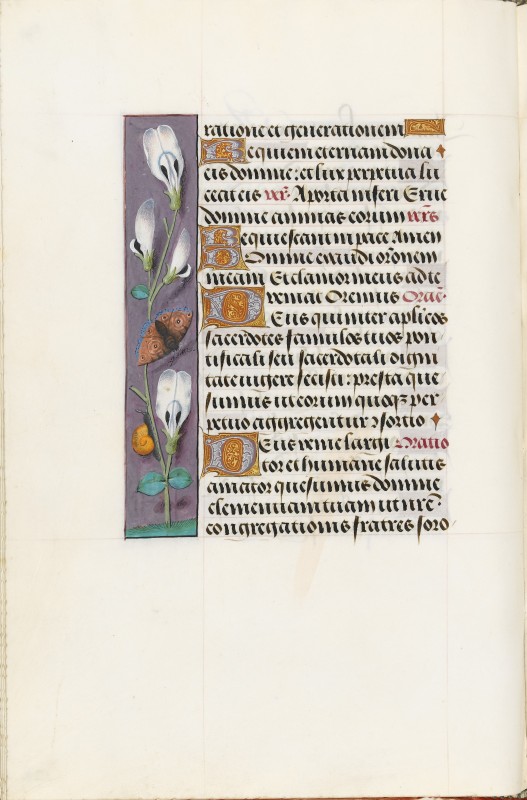 ratione et generationem
Requiem eternam dona
eis domine: et lux perpetua lu
ceat eis vers. A porta inferi Erue
domine animas eorum vers
Requiescant in pace Amen
Domine exaudi oronem
meam Et clamor meus ad te
veniat Oremus Oratio.
Deus qui inter aplicos
sacerdotes famulos tuos pon
tificali seu sacerdotali digni
tate vigere fecisti: presta que
sumus ut eorum quoqz per
petuo aggregentur ɔsortio
Deus venie largi Oratio
tor et humane salutis
amator quesumus domine
clementiam tuam ut nre
congregationis fratres soro